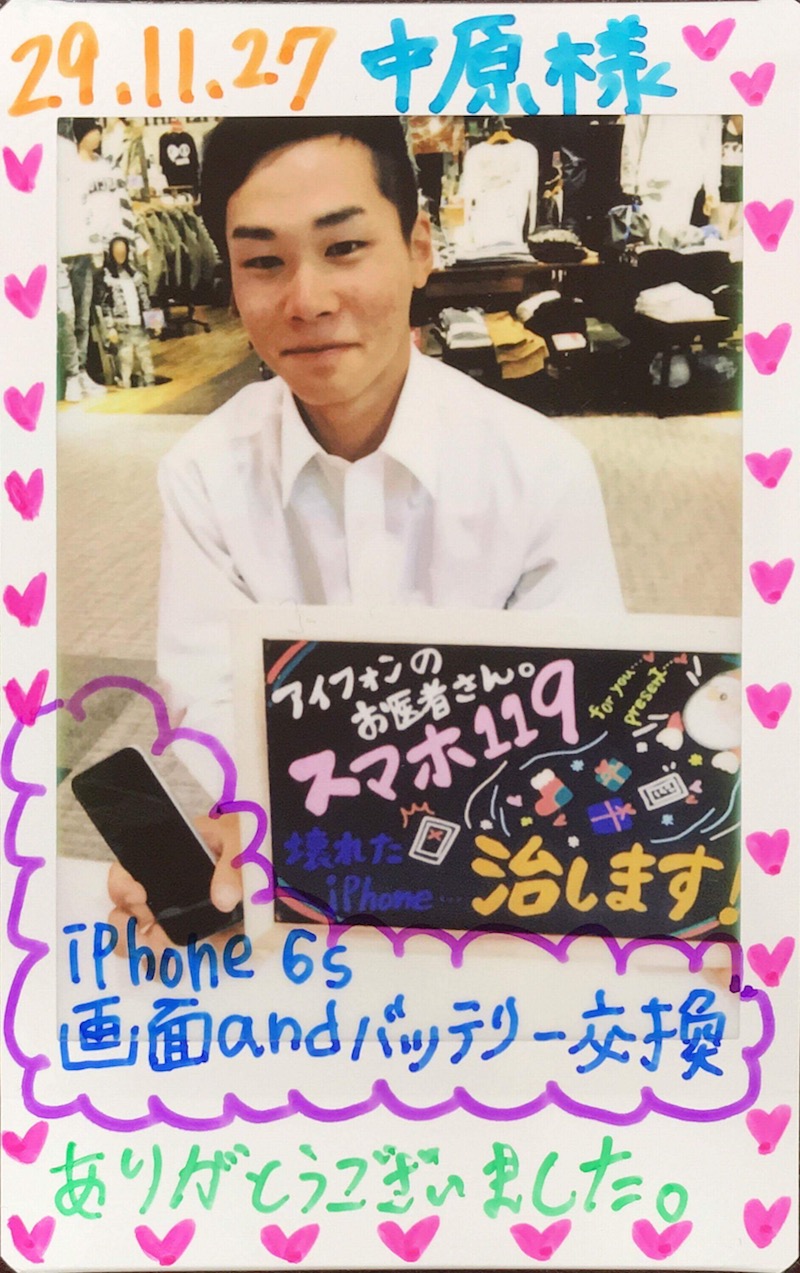 29.11.27 中原様
アイフォンの
お医者さん。
スマホ119
for you...
present...
壊れた
iPhone...
治します!
iPhone 6s
画面andバッテリー交換
ありがとうございました。